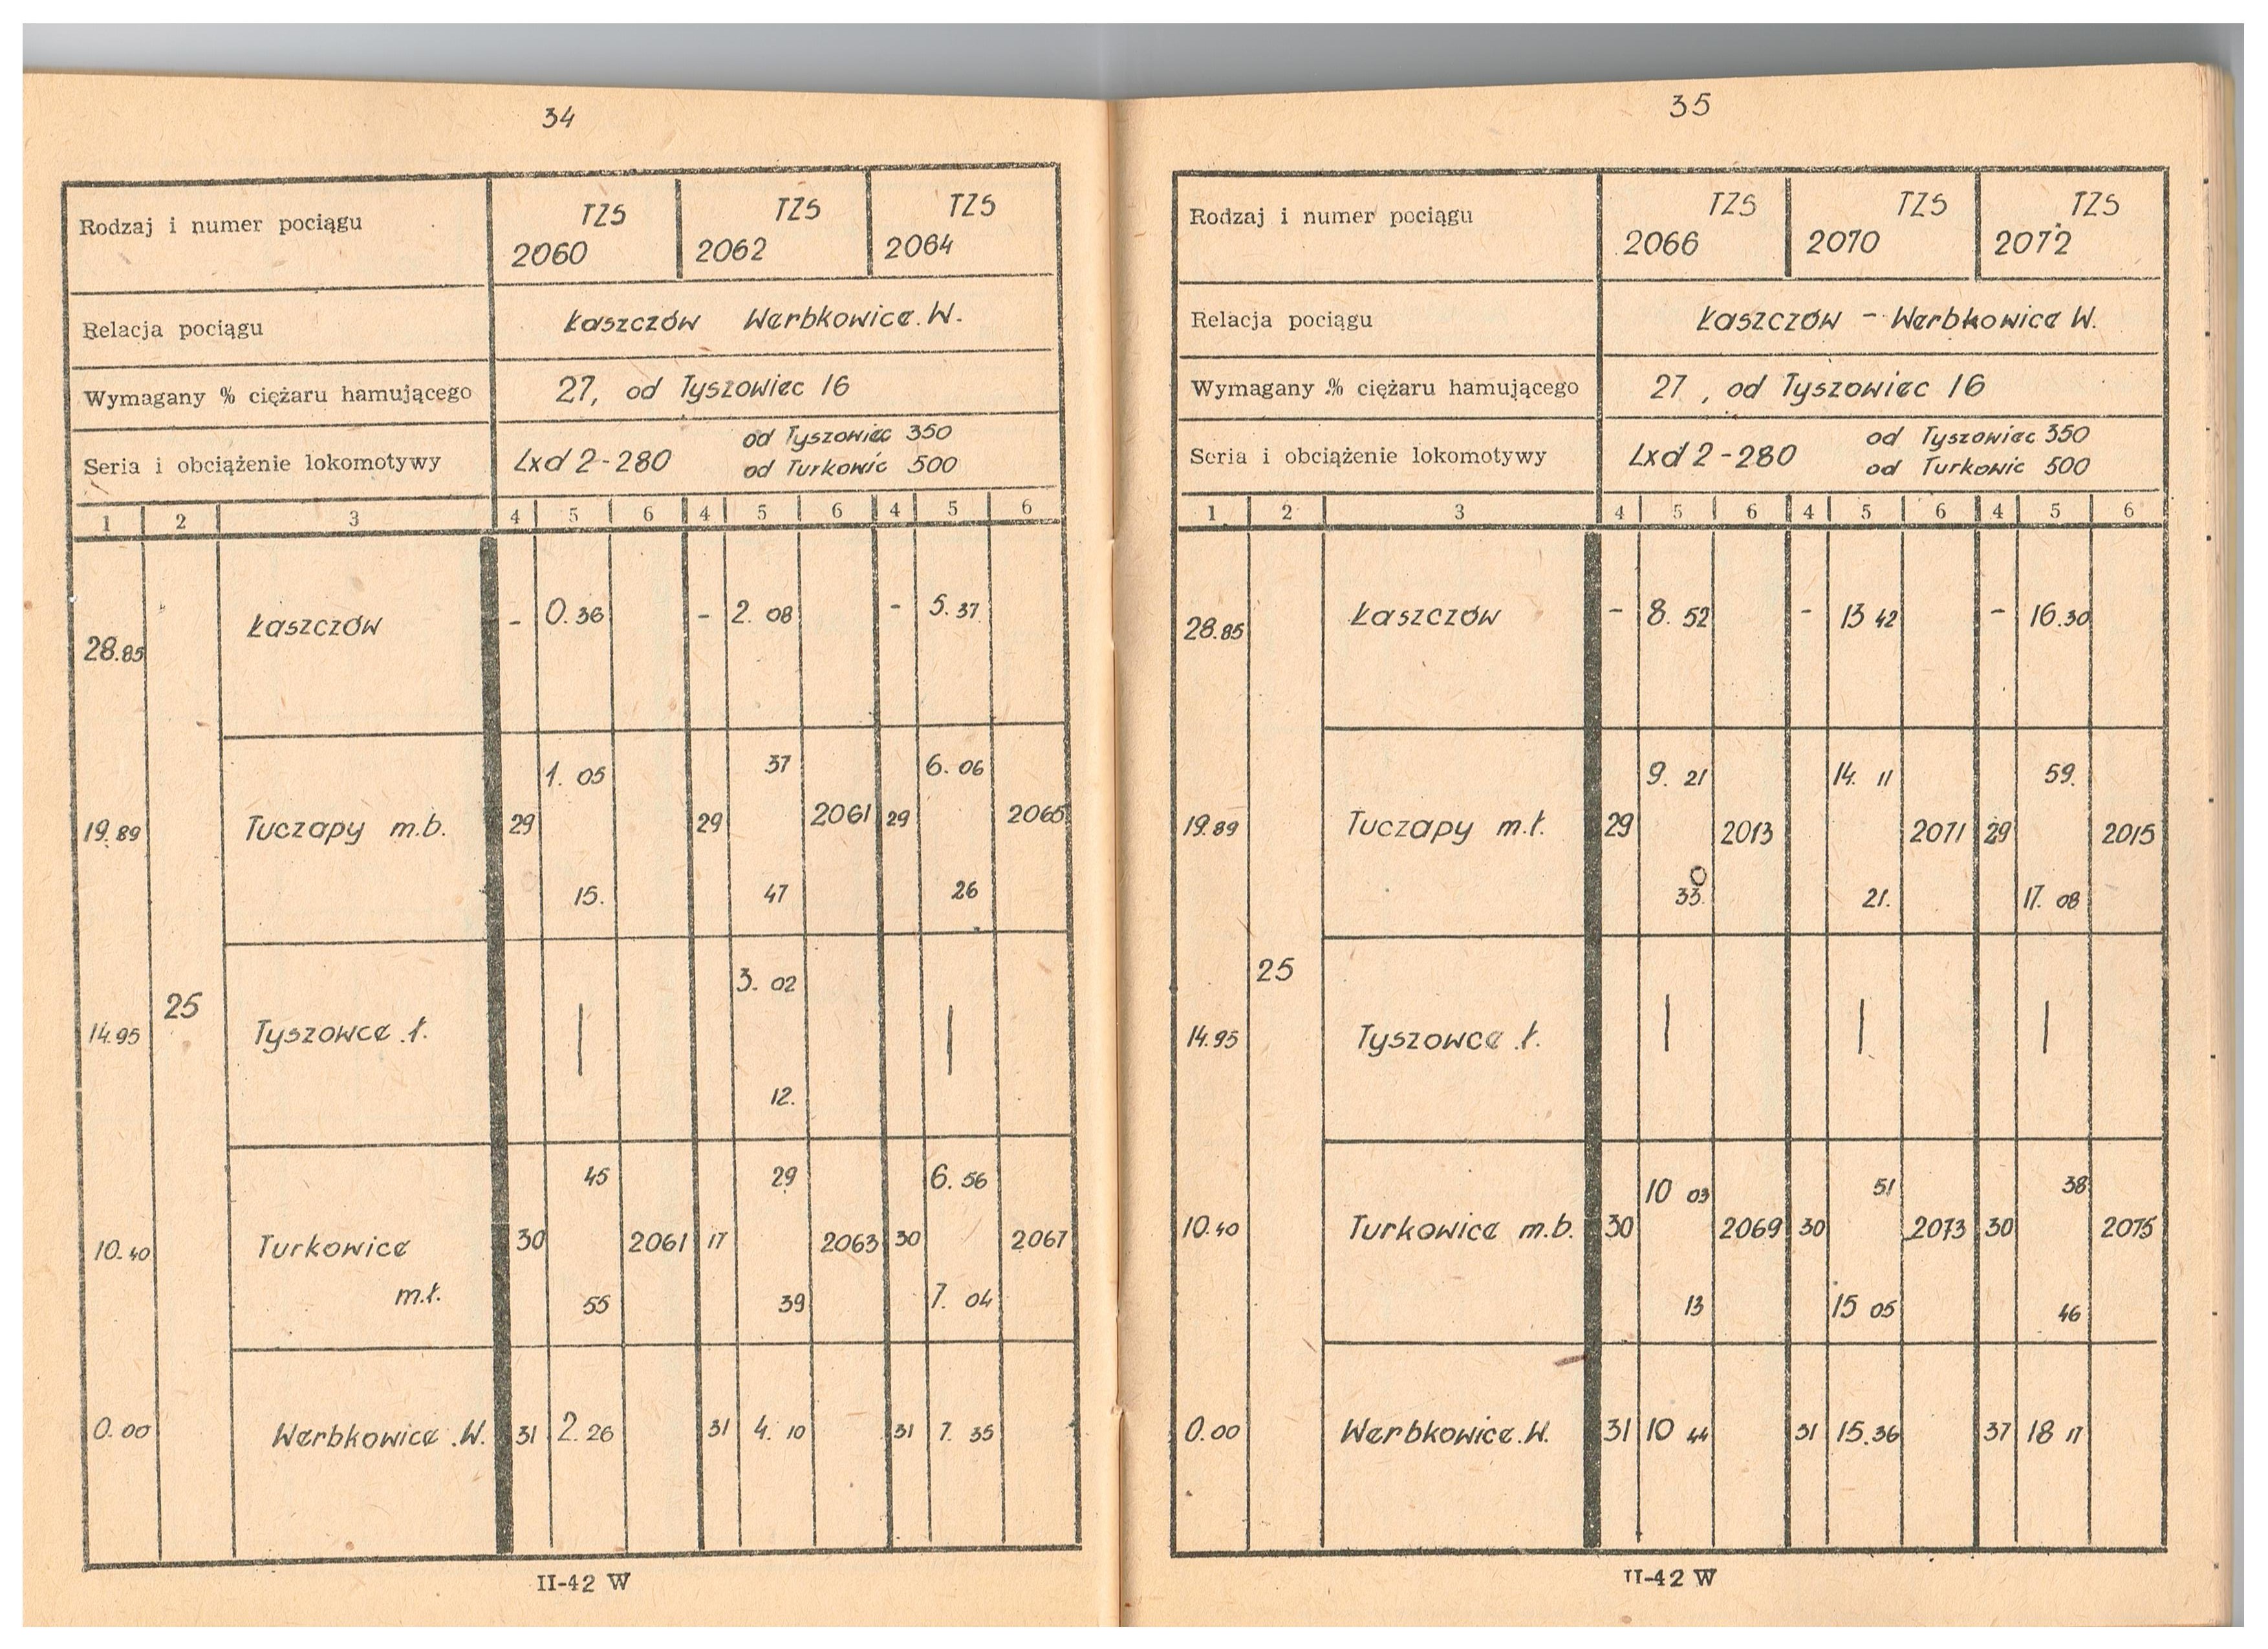 34
Rodzaj i numer pociągu TZS 2060 TZS 2062 TZS 2064
Relacja pociągu Łaszczów Werbkowice.W.
Wymagany % ciężaru hamującego 27, od Tyszowiec 16
Seria i obciążenie lokomotywy Lxd2-280 od Tyszowiec 350
od Turkowic 500
1 2 3 4 5 6 4 5 6 4 5 6
28.85 Łaszczów - 0.36 - 2.08 - 5.37
1.05 37 6.06
19.89 Tuczapy m.b. 29 29 2061 29 2065
15. 47 26
3.02
14.95 25 Tyszowce .ł. | |
12.
45 29 6.56
10.40 Turkowice 30 2061 17 2063 30 2067
m.ł. 55 39 7.04
0.00 Werbkowice .W. 31 2.26 31 4.10 31 7.35
II-42 W
35
Rodzaj i numer pociągu TZS 2066 TZS 2070 TZS 2072
Relacja pociągu Łaszczów - Werbkowice W.
Wymagany % ciężaru hamującego 27, od Tyszowiec 16
Seria i obciążenie lokomotywy Lxd2-280 od Tyszowiec 350
od Turkowic 500
1 2 3 4 5 6 4 5 6 4 5 6
28.85 Łaszczów - 8.52 - 13 42 - 16.30
9.21 14.11 59.
19.89 Tuczapy m.ł. 29 2013 2071 29 2015
33. 21. 17.08
25
14.95 Tyszowce .ł. | | |
10 03 51 38
10.40 Turkowice m.b. 30 2069 30 2073 30 2075
13 15 05 46
0.00 Werbkowice.W. 31 10 44 31 15.36 37 18 17
II-42 W